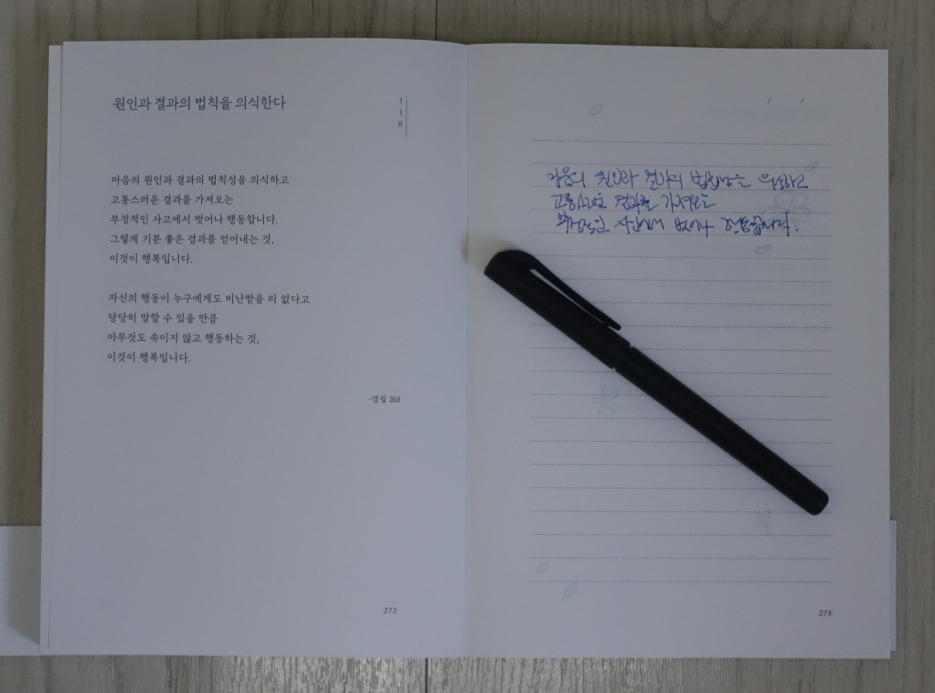 원인과 결과의 법칙을 의식한다
118
마음의 원인과 결과의 법칙성을 의식하고
고통스러운 결과를 가져오는
부정적인 사고에서 벗어나 행동합니다.
그렇게 기분 좋은 결과를 얻어내는 것,
이것이 행복입니다.
자신의 행동이 누구에게도 비난받을 리 없다고
당당히 말할 수 있을 만큼
아무것도 속이지 않고 행동하는 것,
이것이 행복입니다.
-경집 263
272
마음의 원인과 결과의 법칙성을 의식하고
고통스러운 결과를 가져오는
부정적인 사고에서 벗어나 행동합니다.
273